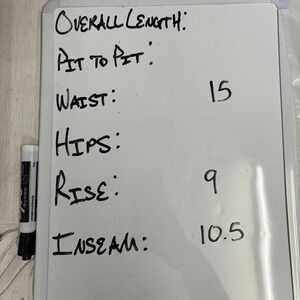 OVERALL LENGTH:
PIT TO PIT:
WAIST: 15
HIPS:
RISE: 9
INSEAM: 10.5